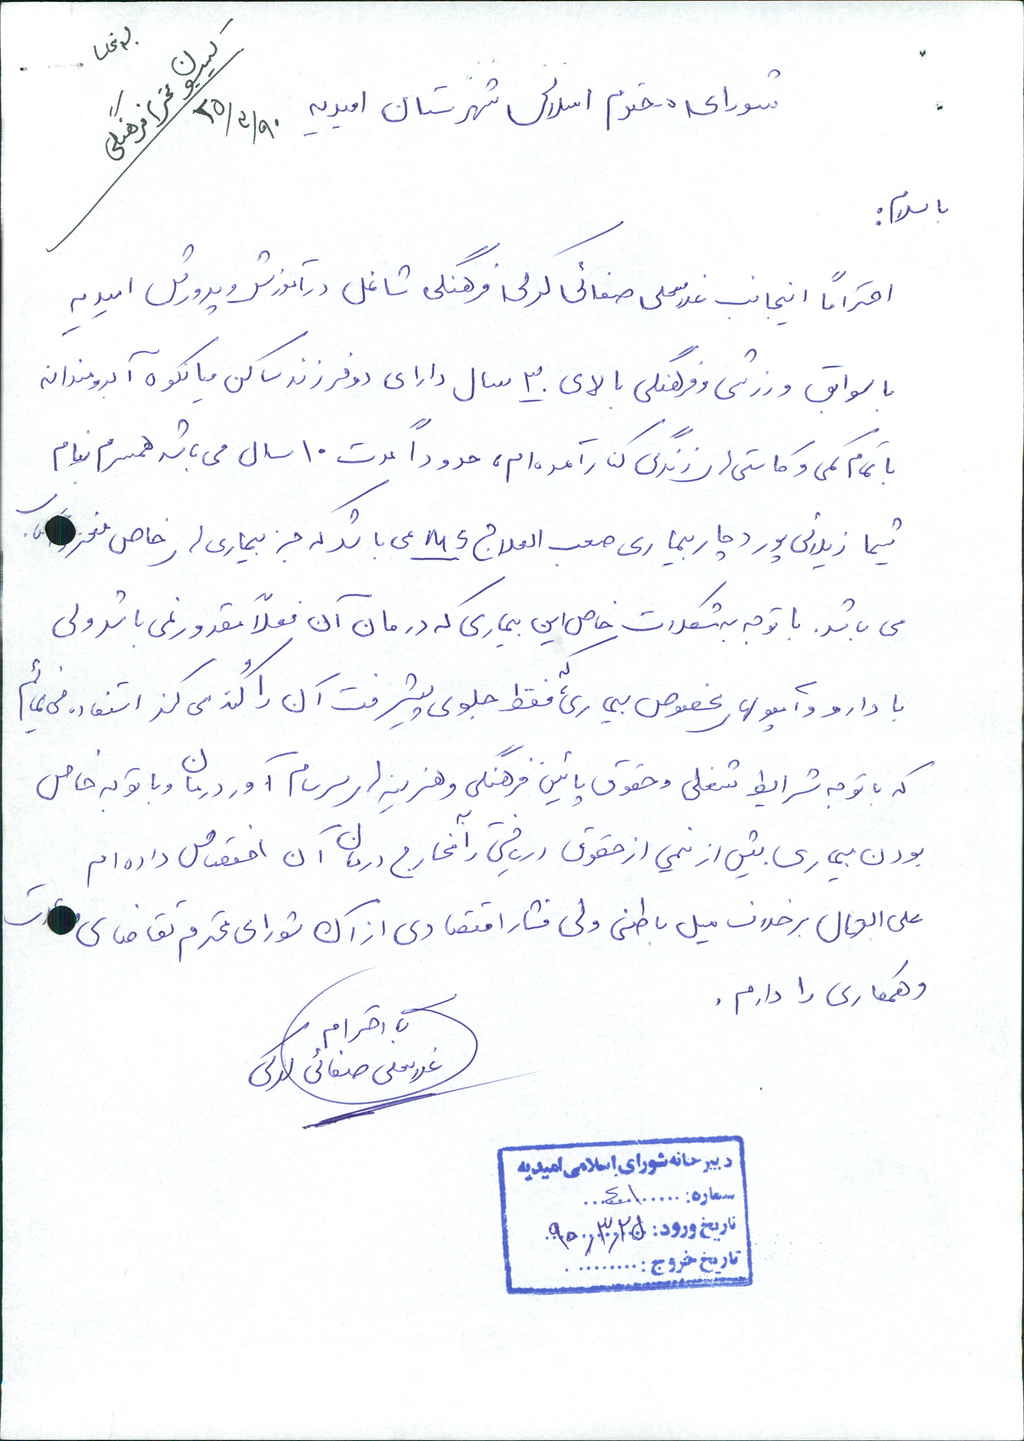 بسمه تعالی
کمیسیون محترم فرهنگی
۹۰/۳/۲۵
شورای محترم اسلامی شهرستان امیدیه
با سلام:
احتراماً اینجانب غلامعلی صفائی کرلی فرهنگی شاغل در آموزش و پرورش امیدیه
با سوابق ورزشی و فرهنگی بالای ۳۰ سال دارای دو فرزند ساکن میانکوه آبرومندانه
با تمام کمی و کاستی از زندگی کنار آمده‌ام، حدوداً مدت ۱۰ سال می باشد همسرم بنام
شیما زیلائی پور دچار بیماری صعب العلاج MS می باشد که جز بیماری از خاص
می باشد. با توجه به مشکلات خاص این بیماری که درمان آن فعلاً مقدور نمی باشد ولی
با دارو و آمپول مخصوص بیماری که فقط جلوی پیشرفت آن را کُند می کند استفاده می نمائیم
که با توجه شرایط شغلی و حقوق پائین فرهنگی و هزینه از سرسام آور درمان و با توجه خاص
بودن بیماری بیش از نیمی از حقوق دریافتی را مخارج درمان آن اختصاص داده ام
علی ایحال برخلاف میل باطنی ولی فشار اقتصادی از آن شورای محترم تقاضای
و همکاری را دارم.
با احترام
غلامعلی صفائی کرلی
دبیرخانه شورای اسلامی امیدیه
شماره: ..........
تاریخ ورود: ۹۰،۳،۲۵
تاریخ خروج: ..........